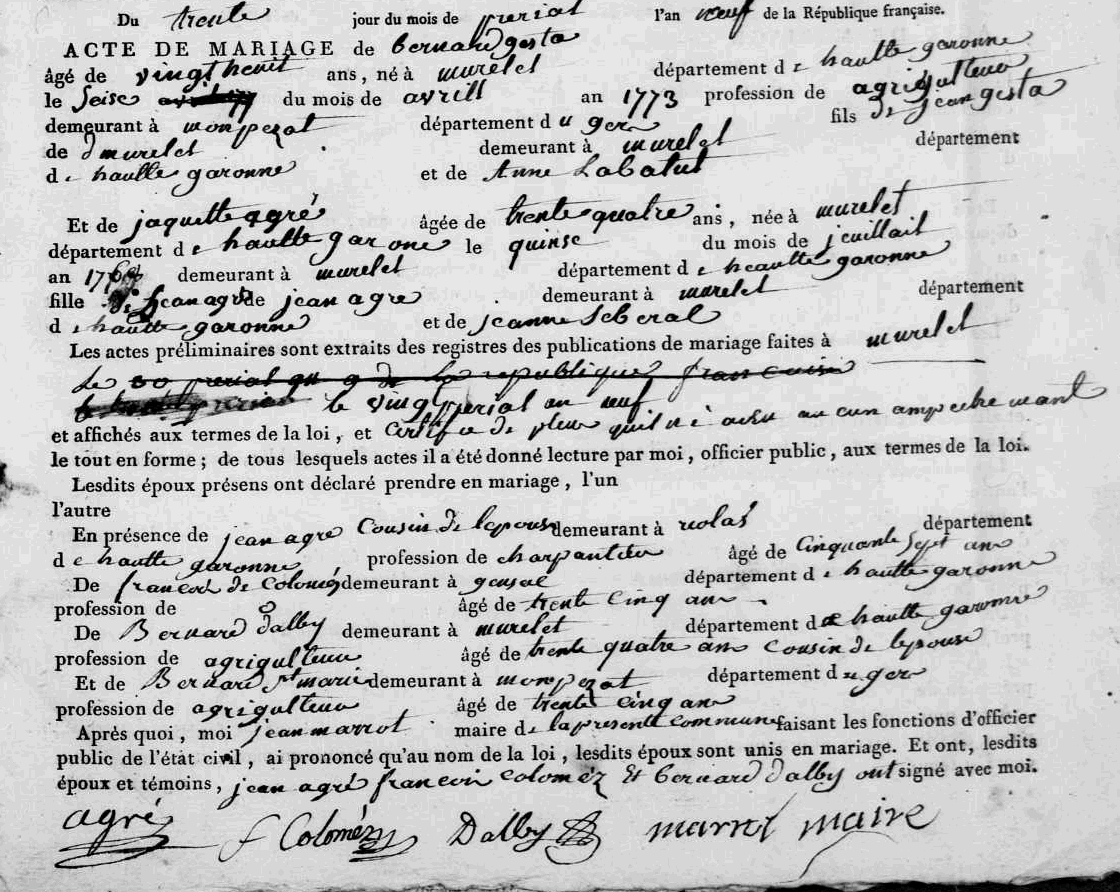 Du trente jour du mois de prerial l'an neuf de la République française.
ACTE DE MARIAGE de bernard gesta
âgé de vingt heuit ans, né à murelet département d e hautte garonne
le seise du mois de avrill an 1773 profession de agrigulteur
demeurant à monpezat département d u gers fils de jean gesta
de d murelet demeurant à murelet département
d e hautte garonne et de Anne Labatut
Et de jaquette agré âgée de trente quatre ans, née à murelet
département d e hautte garonne le quinse du mois de jeuillait
an demeurant à murelet département d e heautte garonne
fille de jean agré de jean agre demeurant à murelet département
d e hautte garonne et de jeanne seberal
Les actes préliminaires sont extraits des registres des publications de mariage faites à murelet
le 30 prerial an 9 de la republique francaise
le vingt prerial an neuf
et affichés aux termes de la loi, et certifie de pleus quil ni a aucun ampechemant
le tout en forme; de tous lesquels actes il a été donné lecture par moi, officier public, aux termes de la loi.
Lesdits époux présens ont déclaré prendre en mariage, l'un
l'autre
En présence de jean agre cousin de lepouse demeurant à riolas département
d e hautte garonne profession de charpantieu âgé de cinquante sept ans
De francois de Colomés demeurant à gensac département d e hautte garonne
profession de âgé de trente cinq ans
De Bernard dalby demeurant à murelet département d e hautte garonne
profession de agrigulteur âgé de trente quatre ans cousin de lepouse
Et de Bernard St marie demeurant à monpezat département d u gers
profession de agrigulteur âgé de trente cinq ans
Après quoi, moi jean marrot maire de la presente commune faisant les fonctions d'officier
public de l'état civil, ai prononcé qu'au nom de la loi, lesdits époux sont unis en mariage. Et ont, lesdits
époux et témoins, jean agré francois coloméz et bernard dalby ont signé avec moi.
agré f Coloméz Dalby marrot maire